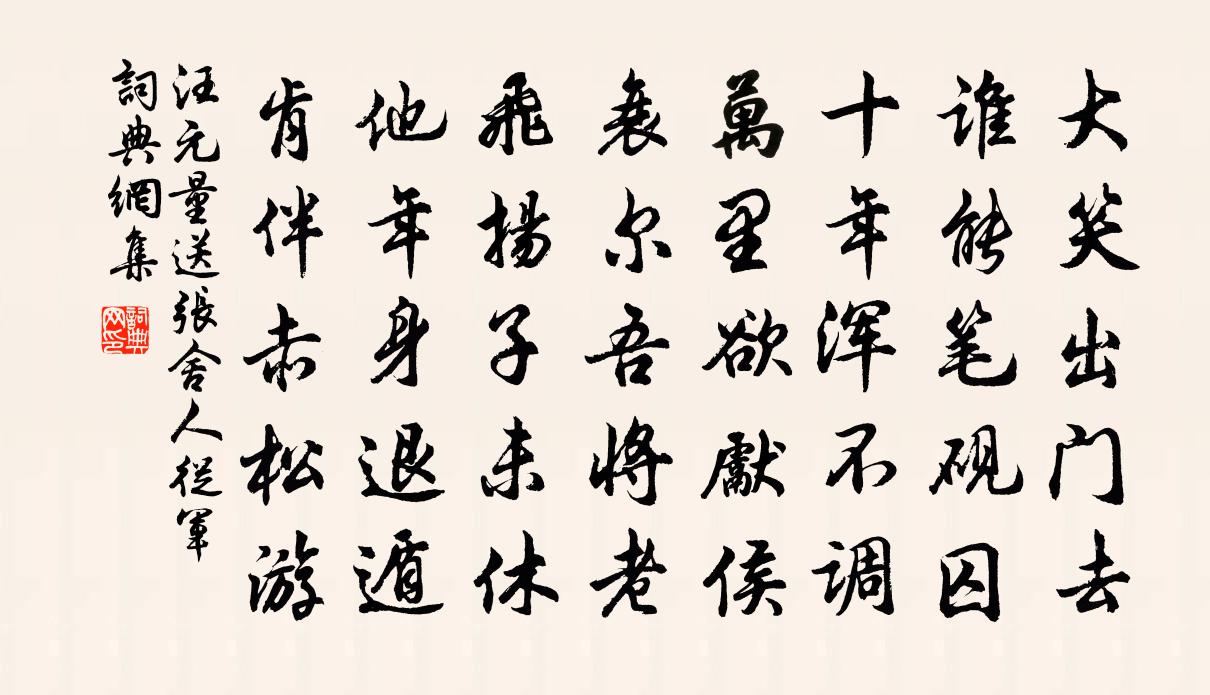 大笑出门去
谁能笔砚囚
十年浑不调
萬里欲獻侯
衰尔吾將老
飛揚子未休
他年身退遁
肯伴赤松游
汪元量送張舍人從軍
詞典網集
詞典网印